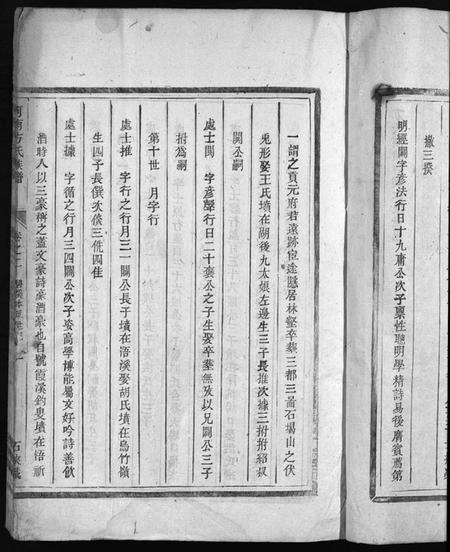 撒三揆
明經關字彥法行日十九庸公次子禀性聰明學精詩易後膺賓薦第
一謂之貢元府君遠跡宦途隱居林壑卒葬三都三畐石場山之伏
兎形娶王氏墳在湖後九太娘左邊生三子長推次據三拊拊紹叔
開公嗣
處士開 字彥聲行日二十裘公之子生娶卒葬無攷以兄關公三子
拊為嗣
第十世 月字行
處士推 字行之行月三一關公長子墳在浯溪娶胡氏墳在烏竹嶺
生四子長儇次倓三侹四佳
處士據 字循之行月三四關公次子姿高學博能屬文好吟詩善飲
酒時人以三豪稱之蓋文豪詩豪酒豪也自號霞溪釣叟墳在浯祈
河南方氏族譜
卷之二